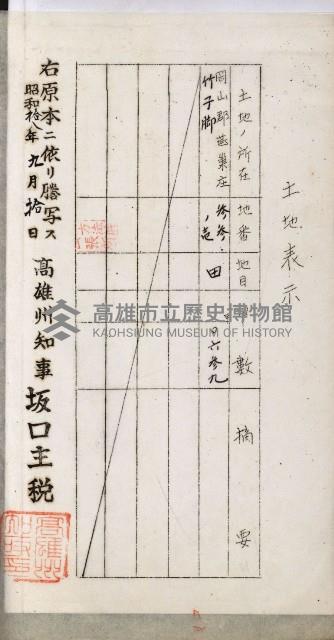 土地表示
土地ノ所在 地番 地目 數 摘要
岡山郡 庄
竹子脚 參參ノ 田 六參九
右原本ニ依リ謄写ス
昭和拾年九月拾日
高雄州知事 坂口主税
高雄州知事印
高雄市立歷史博物館
KAOHSIUNG MUSEUM OF HISTORY